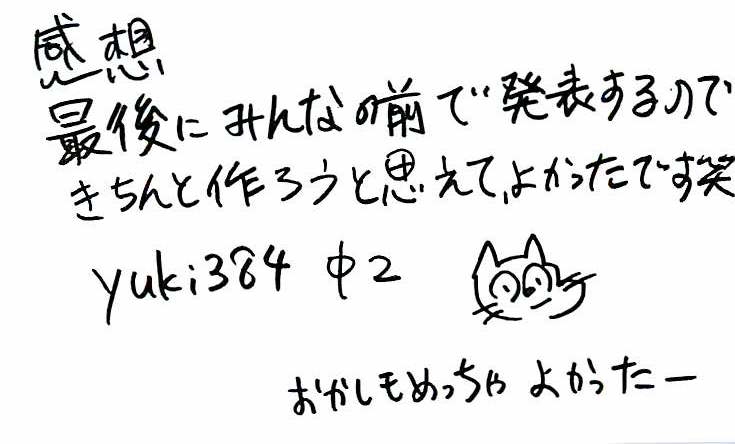 感想
最後にみんなの前で発表するので
きちんと作ろうと思えて、よかったです笑
yuki384 中2
おかしもめっちゃよかったー